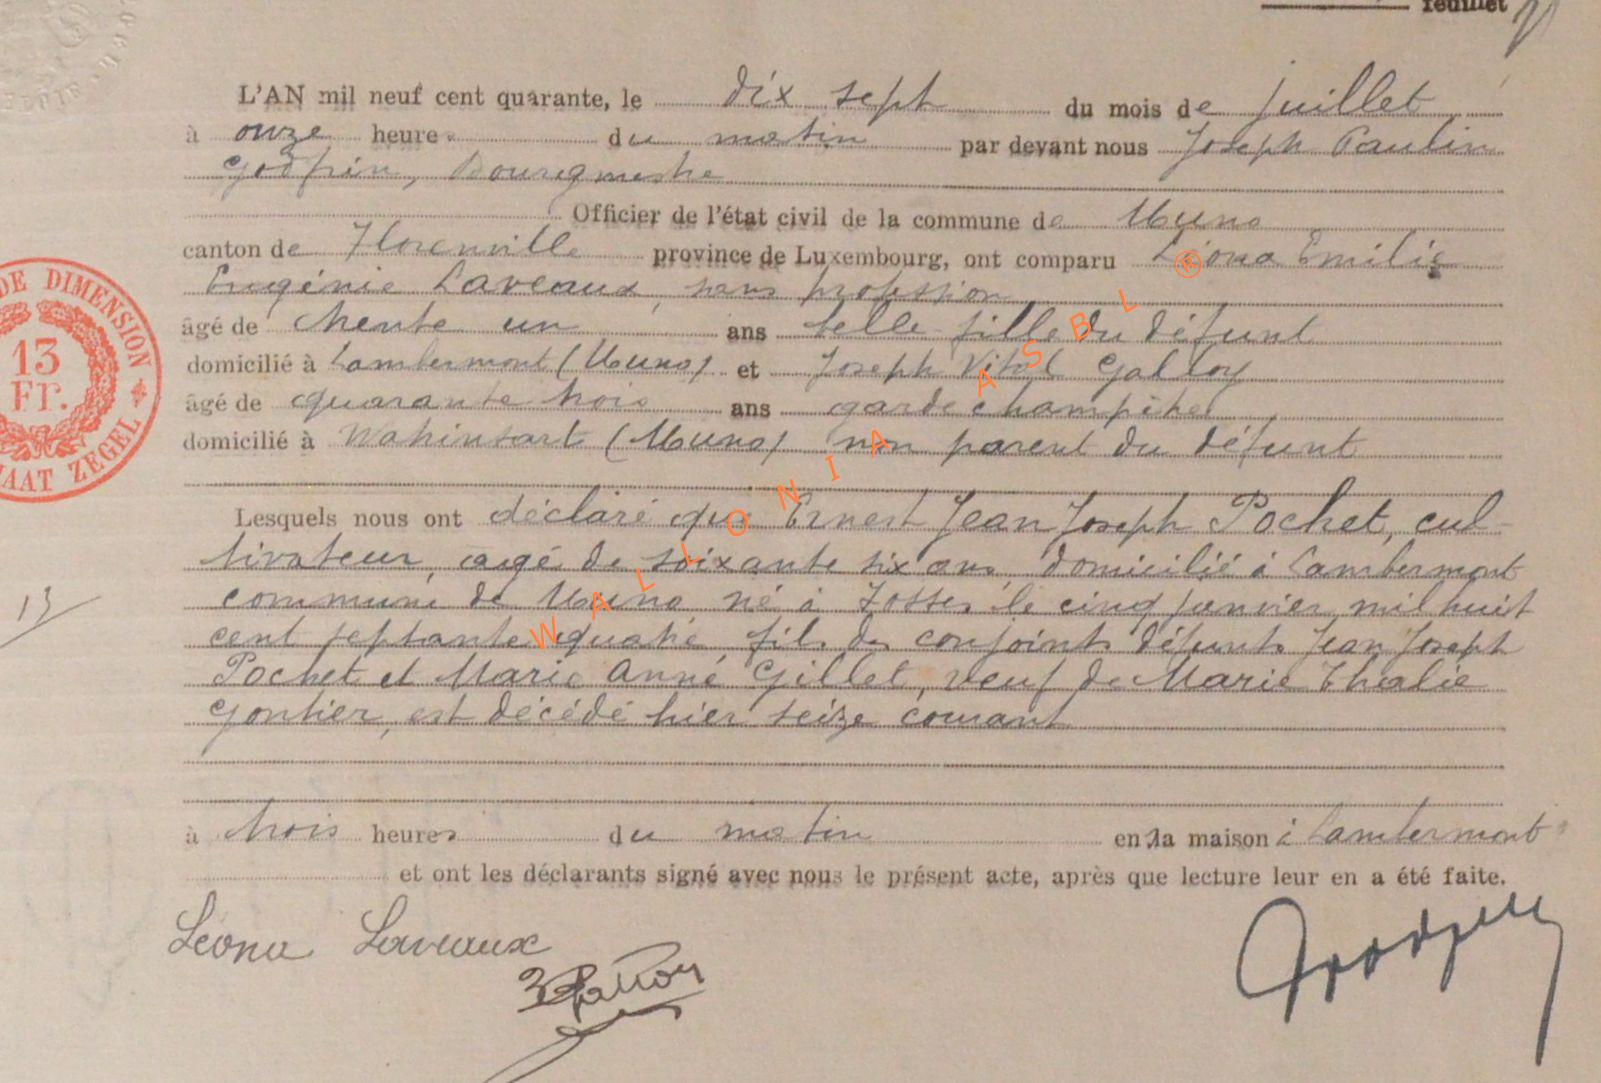 feuillet
L'AN mil neuf cent quarante, le dix sept du mois de juillet
à onze heures du matin par devant nous Joseph Paulin
Godfrin, Bourgmestre
Officier de l'état civil de la commune de Muno
canton de Florenville province de Luxembourg, ont comparu Léona Emilie
Eugénie Laveaux, sans profession
âgé de trente un ans belle-fille du défunt
domicilié à Lambermont (Muno) et Joseph Vital Galloy
âgé de quarante trois ans garde champêtre
domicilié à Watrinsart (Muno) non parent du défunt
Lesquels nous ont déclaré que Ernest Jean Joseph Pochet, cul-
tivateur, agé de soixante six ans, domicilié à Lambermont
commune de Muno né à Fosses le cinq janvier mil huit
cent septante quatre, fils des conjoints défunts Jean Joseph
Pochet et Marie Anne Gillet, veuf de Marie Thalie
Gontier, est décédé hier seize courant
à trois heures du matin en la maison à Lambermont
et ont les déclarants signé avec nous le présent acte, après que lecture leur en a été faite.
Léona Laveaux
Galloy
Godfrin
DE DIMENSION
13
Fr.
MAAT ZEGEL
13
WALLONIA ASBL ®